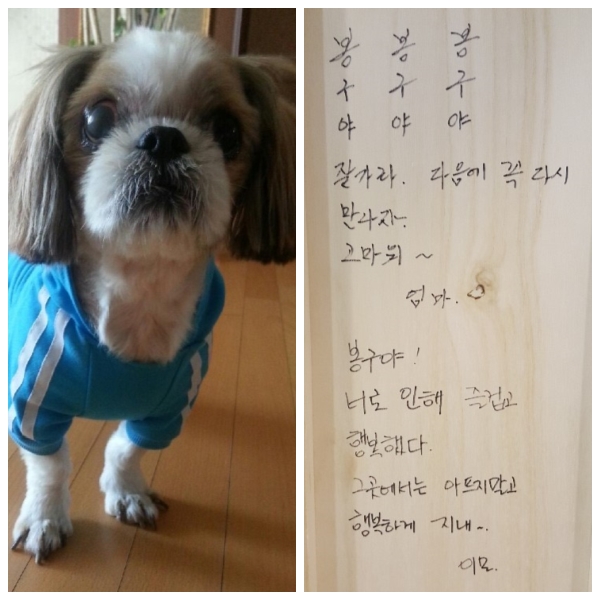 봉 봉 봉
구 구 구
야 야 야
잘가라. 다음에 꼭 다시
만나자.
고마워 ~
엄마. ♡
봉구야!
너로 인해 즐겁고
행복했다.
그곳에서는 아프지말고
행복하게 지내~.
이모.